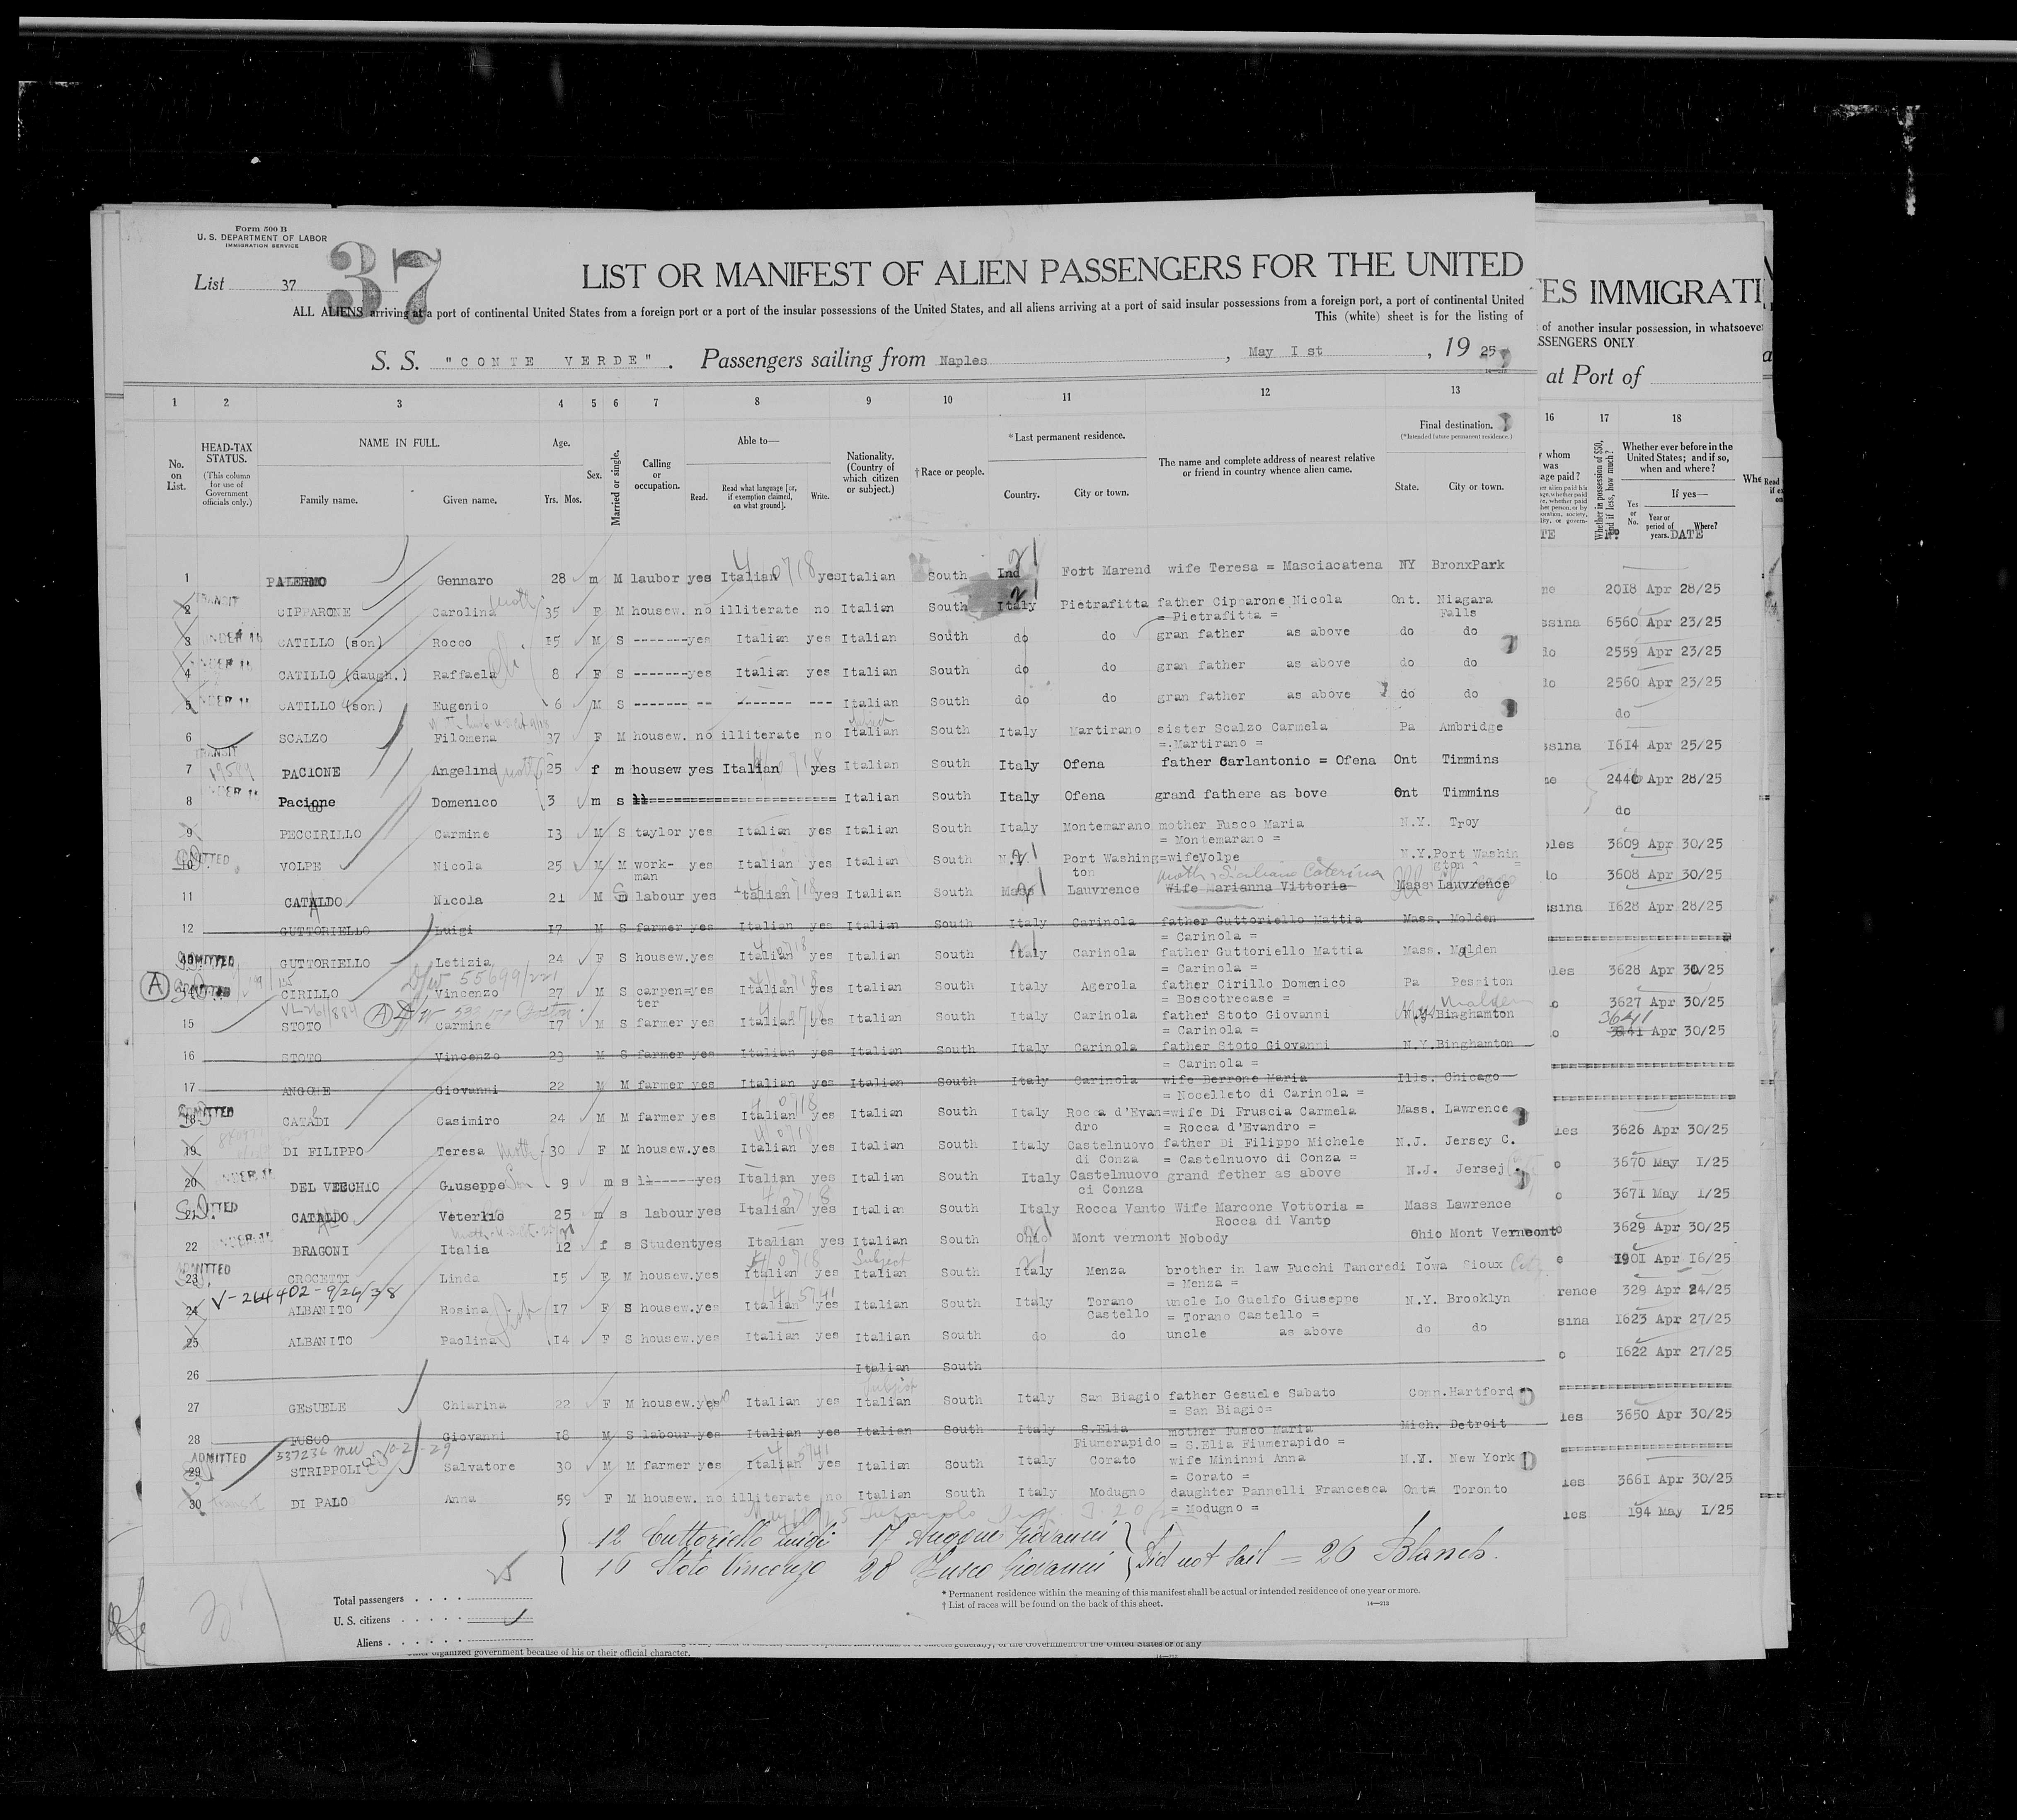 Form 500 B
U. S. DEPARTMENT OF LABOR
IMMIGRATION SERVICE
List 37
37
LIST OR MANIFEST OF ALIEN PASSENGERS FOR THE UNITED
ALL ALIENS arriving at a port of continental United States from a foreign port or a port of the insular possessions of the United States, and all aliens arriving at a port of said insular possessions from a foreign port, a port of continental United
This (white) sheet is for the listing of
S. S. "CONTE VERDE". Passengers sailing from Naples, May I st, 19 25
1 2 3 4 5 6 7 8 9 10 11 12 13
No. on List.
HEAD-TAX STATUS.
(This column for use of Government officials only.)
NAME IN FULL.
Family name. Given name.
Age.
Yrs. Mos.
Sex.
Married or single.
Calling or occupation.
Able to—
Read. Read what language [or, if exemption claimed, on what ground]. Write.
Nationality. (Country of which citizen or subject.)
† Race or people.
* Last permanent residence.
Country. City or town.
The name and complete address of nearest relative or friend in country whence alien came.
Final destination.
(*Intended future permanent residence.)
State. City or town.
1 PALERMO Gennaro 28 m M laubor yes Italian yes Italian South Ind Fort Marend wife Teresa = Masciacatena NY BronxPark
2 TRANSIT CIPPARONE Carolina 35 F M housew. no illiterate no Italian South Italy Pietrafitta father Cipparone Nicola Ont. Niagara
= Pietrafitta = Falls
3 UNDER 16 CATILLO (son) Rocco 15 M S -------yes Italian yes Italian South do do gran father as above do do
4 CATILLO (daugh.) Raffaela 8 F S -------yes Italian yes Italian South do do gran father as above do do
5 CATILLO (son) Eugenio 6 M S ------- -- ------- --- Italian South do do gran father as above do do
6 SCALZO Filomena 37 F M housew. no illiterate no Italian South Italy Martirano sister Scalzo Carmela Pa Ambridge
= Martirano =
TRANSIT
7 PACIONE Angelina 25 f m housew yes Italian yes Italian South Italy Ofena father Carlantonio = Ofena Ont Timmins
8 Pacione Domenico 3 m s ================== Italian South Italy Ofena grand fathere as bove Ont Timmins
9 PECCIRILLO Carmine 13 M S taylor yes Italian yes Italian South Italy Montemarano mother Fusco Maria N.Y. Troy
= Montemarano =
10 ADMITTED VOLPE Nicola 25 M M work- yes Italian yes Italian South N.Y. Port Washing=wifeVolpe N.Y. Port Washin
man ton gton =
moth. Siciliano Caterina
11 CATALDO Nicola 21 M S labour yes Italian yes Italian South Mass Lauvrence wife Marianna Vittoria Mass Lauvrence
12 GUTTORIELLO Luigi 17 M S farmer yes Italian yes Italian South Italy Carinola father Guttoriello Mattia Mass. Molden
= Carinola =
ADMITTED GUTTORIELLO Letizia 24 F S housew.yes Italian yes Italian South Italy Carinola father Guttoriello Mattia Mass. Malden
= Carinola =
D/W 55699/221
A CIRILLO Vincenzo 27 M S carpen=yes Italian yes Italian South Italy Agerola father Cirillo Domenico Pa Pessiton
ter = Boscotrecase =
Malden
15 STOTO Carmine 17 M S farmer yes Italian yes Italian South Italy Carinola father Stoto Giovanni N.Y. Binghamton
= Carinola =
16 STOTO Vincenzo 23 M S farmer yes Italian yes Italian South Italy Carinola father Stoto Giovanni N.Y. Binghamton
= Carinola =
17 ANGONE Giovanni 22 M M farmer yes Italian yes Italian South Italy Carinola wife Berrone Maria Ills. Chicago
= Nocelleto di Carinola =
18 ADMITTED CATADI Casimiro 24 M M farmer yes Italian yes Italian South Italy Rocca d'Evan=wife Di Fruscia Carmela Mass. Lawrence
dro = Rocca d'Evandro =
19 DI FILIPPO Teresa 30 F M housew.yes Italian yes Italian South Italy Castelnuovo father Di Filippo Michele N.J. Jersey C.
di Conza = Castelnuovo di Conza =
20 DEL VECCHIO Giuseppe Son 9 m s ------yes Italian yes Italian South Italy Castelnuovo grand fether as above N.J. Jersej
ci Conza
CATALDO Veterlio 25 m s labour yes Italian yes Italian South Italy Rocca Vanto Wife Marcone Vottoria = Mass Lawrence
Rocca di Vanto
22 BRAGONI Italia 12 f s Studentyes Italian yes Italian South Ohio Mont vermont Nobody Ohio Mont Vermont
23 ADMITTED CROCETTI Linda 15 F M housew.yes Italian yes Italian South Italy Menza brother in law Fucchi Tancredi Iowa Sioux City
= Menza =
V-264402-9/26/38
24 ALBANITO Rosina 17 F S housew.yes Italian yes Italian South Italy Torano uncle Lo Guelfo Giuseppe N.Y. Brooklyn
Castello = Torano Castello =
25 ALBANITO Paolina 14 F S housew.yes Italian yes Italian South do do uncle as above do do
26 Italian South
27 GESUELE Chiarina 22 F M housew.yes Italian yes Italian South Italy San Biagio father Gesuele Sabato Conn. Hartford
= San Biagio=
28 FUSCO Giovanni 18 M S labour.yes Italian yes Italian South Italy S.Elia mother Fusco Maria Mich. Detroit
Fiumerapido = S.Elia Fiumerapido =
ADMITTED
29 STRIPPOLI Salvatore 30 M M farmer yes Italian yes Italian South Italy Corato wife Mininni Anna N.Y. New York
= Corato =
30 DI PALO Anna 59 F M housew. no illiterate no Italian South Italy Modugno daughter Pannelli Francesca Ont= Toronto
= Modugno =
12 Guttoriello Luigi 17 Angone Giovanni
16 Stoto Vincenzo 28 Fusco Giovanni Did not sail = 26 Blanch.
25
Total passengers
U. S. citizens
Aliens
* Permanent residence within the meaning of this manifest shall be actual or intended residence of one year or more.
† List of races will be found on the back of this sheet.
14—212
other organized government because of his or their official character.
ES IMMIGRATI
of another insular possession, in whatsoever
SSENGERS ONLY
at Port of
16 17 18
Whether in possession of $50, and if less, how much?
Whether ever before in the United States; and if so, when and where?
If yes—
Yes or No. Year or period of years. Where?
DATE
2018 Apr 28/25
6560 Apr 23/25
2559 Apr 23/25
2560 Apr 23/25
do
1614 Apr 25/25
2446 Apr 28/25
do
3609 Apr 30/25
3608 Apr 30/25
1628 Apr 28/25
3628 Apr 30/25
3627 Apr 30/25
3641
3641 Apr 30/25
3626 Apr 30/25
3670 May 1/25
3671 May 1/25
3629 Apr 30/25
1901 Apr 16/25
329 Apr 24/25
1623 Apr 27/25
1622 Apr 27/25
3650 Apr 30/25
3661 Apr 30/25
194 May 1/25